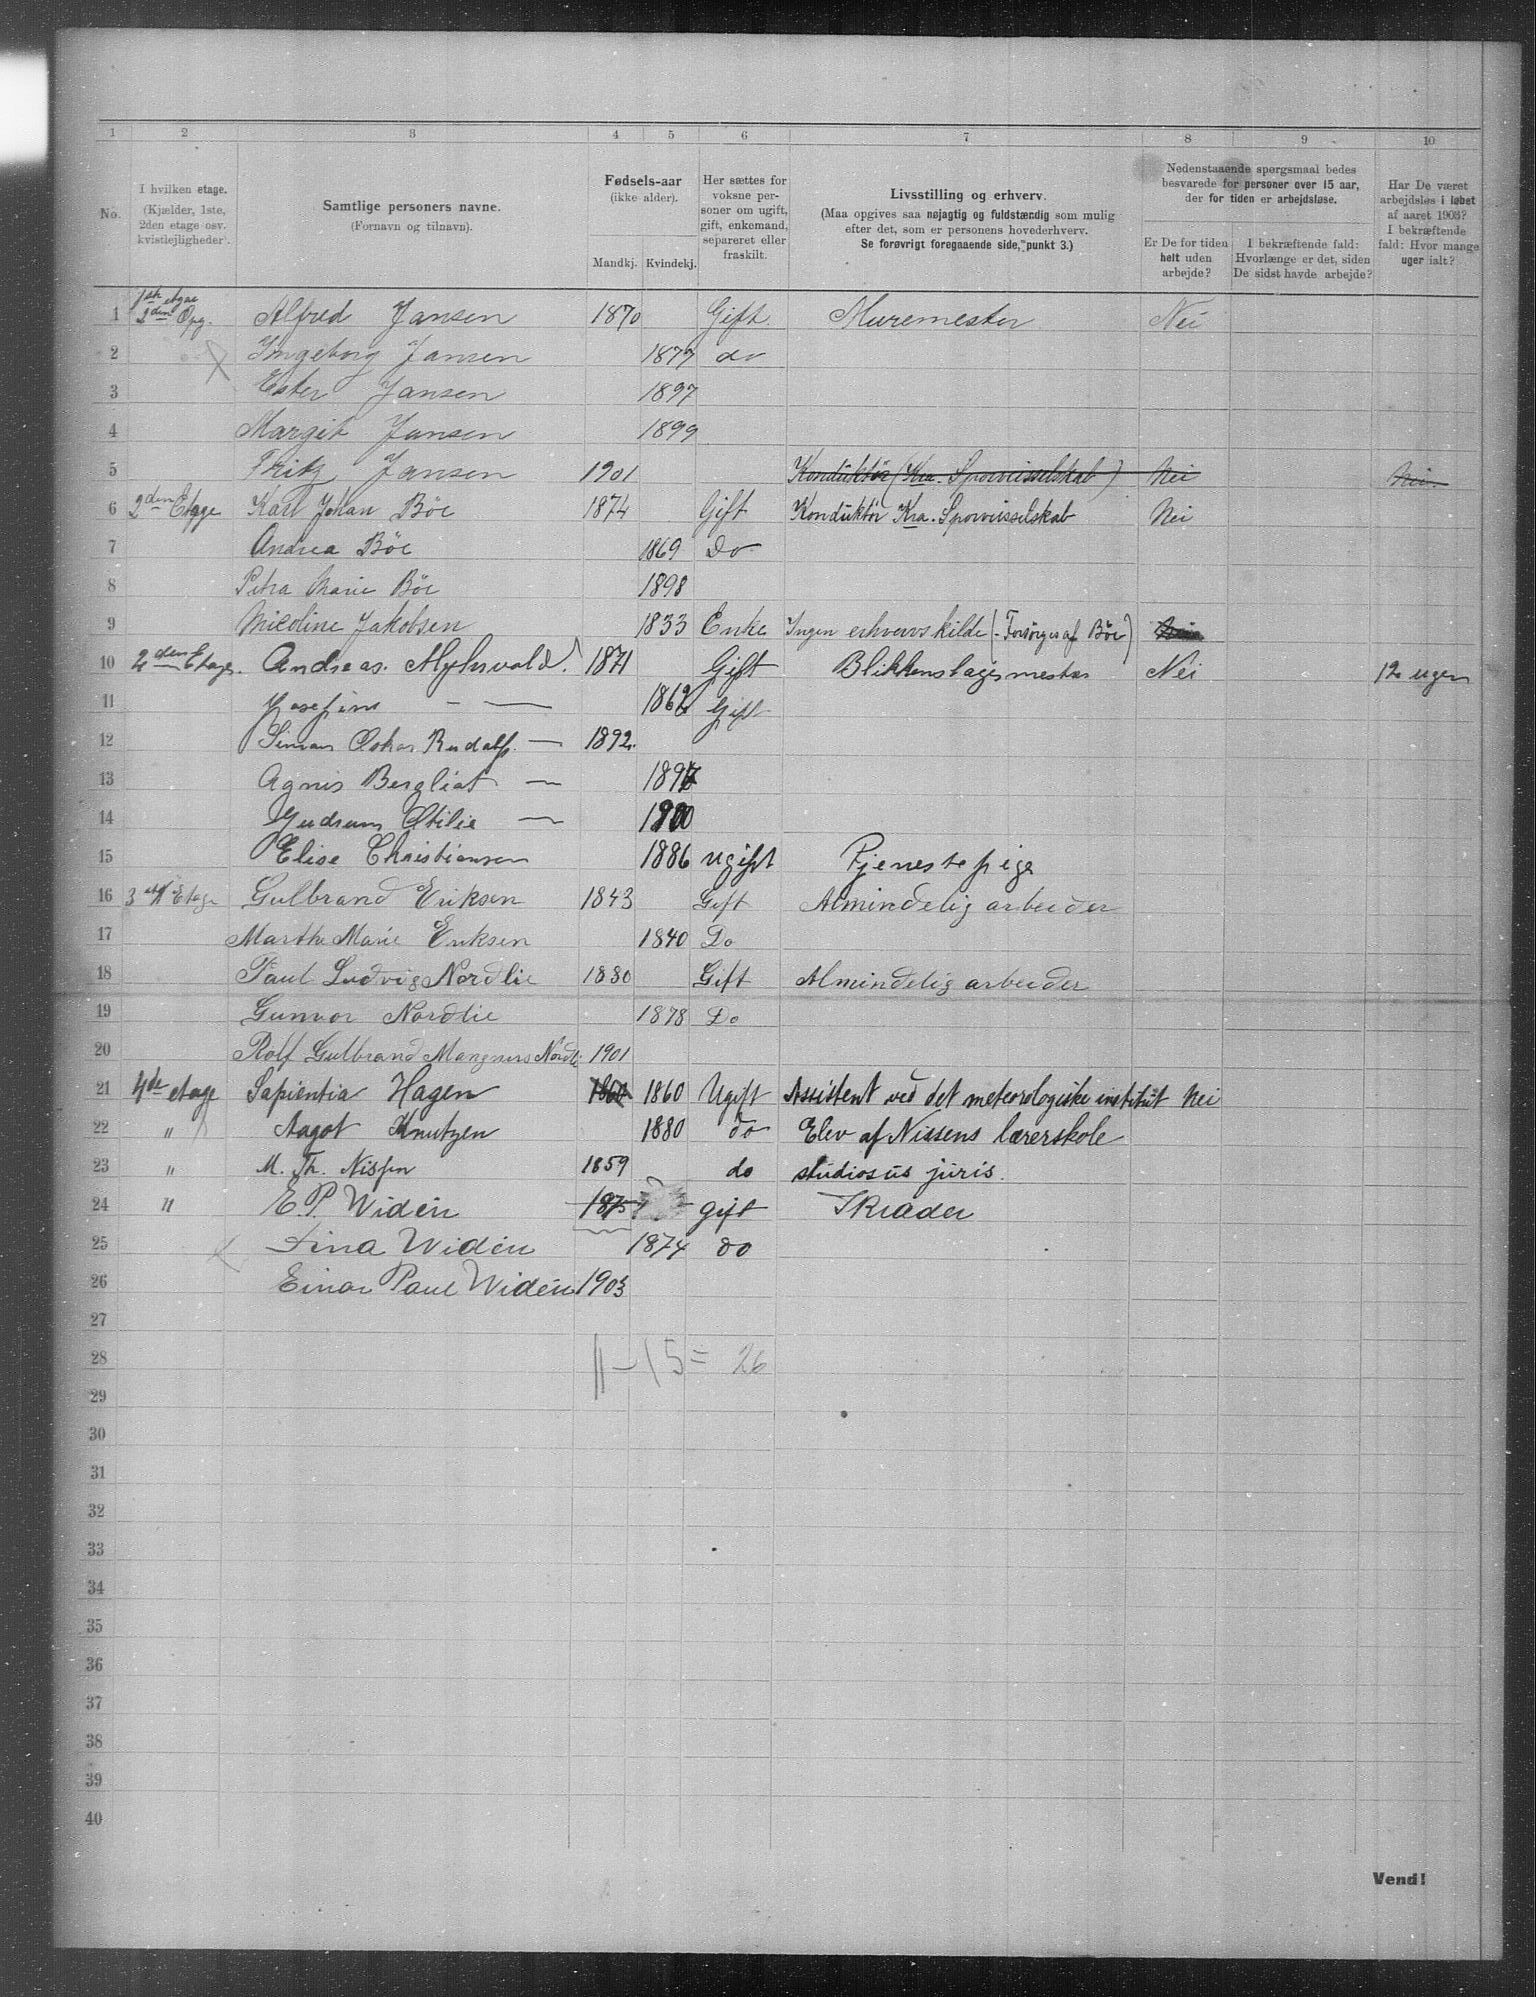 1 2 3 4 5 6 7 8 9 10
No. I hvilken etage. (Kjælder, 1ste, 2den etage osv. kvistlejligheder). Samtlige personers navne. (Fornavn og tilnavn). Fødsels-aar (ikke alder). Mandkj. Kvindekj. Her sættes for voksne personer om ugift, gift, enkemand, separeret eller fraskilt. Livsstilling og erhverv. (Maa opgives saa nøjagtig og fuldstændig som mulig efter det, som er personens hovederhverv. Se forøvrigt foregaaende side, punkt 3.) Nedenstaaende spørgsmaal bedes besvarede for personer over 15 aar, der for tiden er arbejdsløse. Er De for tiden helt uden arbejde? I bekræftende fald: Hvorlænge er det, siden De sidst havde arbejde? Har De været arbejdsløs i løbet af aaret 1903? I bekræftende fald: Hvor mange uger ialt?
1 1ste etage 2den Opg. Alfred Jansen 1870 Gift Muremester Nei
2 Ingeborg Jansen 1877 do
3 Ester Jansen 1897
4 Margit Jansen 1899
5 Fritz Jansen 1901 Konduktør (Kra. Sporveisselskab) Nei Nei
6 2den Etage Karl Johan Böe 1874 Gift Konduktör Kra. Sporveisselskab Nei
7 Andrea Böe 1869 Do
8 Petra Marie Böe 1898
9 Nicoline Jakobsen 1833 Enke Ingen erhvervskilde (Forsörges af Böe)
10 2den Etage. Andreas. 1871 Gift Blikkenslagermester Nei 12 uger
11 Josefine — 1862 Gift
12 Simon Oskar Rudolf — 1892
13 Agnis Bergliot — 1897
14 Gudrun Otilie — 1900
15 Elise Christiansen 1886 ugift Tjenestepige
16 3die Etage Gulbrand Eriksen 1843 Gift Almindelig arbeider
17 Marthe Marie Eriksen 1840 Do
18 Paul Ludvig Nordlie 1880 Gift Almindelig arbeider
19 Gunvor Nordlie 1878 Do
20 Rolf Gulbrand Mangnus Nordli 1901
21 4de etage Sapientia Hagen 1860 1860 Ugift Assistent ved det meteorologiske institut Nei
22 " Aagot Knutzen 1880 do Elev af Nissens lærerskole
23 " M. Th. Nissen 1859 do studiosus juris.
24 " E. P. Widén 1875 gift Skræder
25 Lina Widén 1874 do
26 Einar Paul Widén 1903
27
28 11 – 15 = 26
29
30
31
32
33
34
35
36
37
38
39
40
Vend!